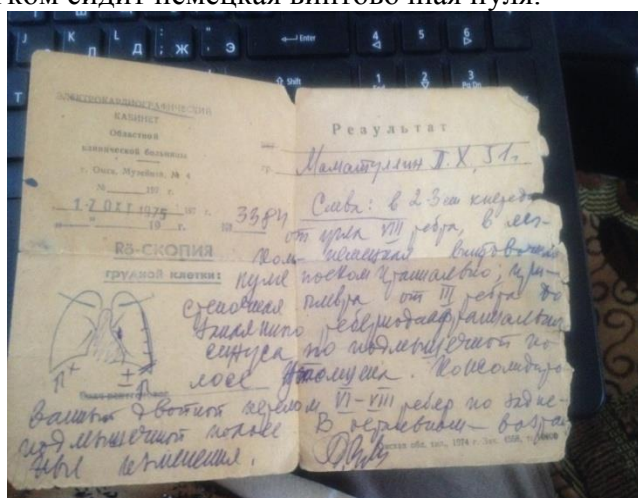 ком сидит немецкая винтовочная пуля.
ЭЛЕКТРОКАРДИОГРАФИЧЕСКИЙ
КАБИНЕТ
Областной
клинической больницы
г. Омск, Музейная, № 4
№ 197 г.
1 2 ОКТ 1975
19 г.
RÖ-СКОПИЯ
грудной клетки:
Результат
гр. Маматуллин П. Х, 51 г.
№ 3384 Слева: в 2-3 см кпереди
от угла VIII ребра, в лег-
ком немецкая винтовочная
пуля носком краниально; при-
стеночная плевра от III ребра до
реберно-диафрагмального
синуса по подмышечной по-
лосе утолщена. Консолидиро-
ванный двойной перелом VI-VIII ребер по задне-
подмышечной полосе. В остальном - возраст-
ные изменения.
обл. тип. 1974 г. Зак. 4558, т.
Enter
Shift
4
5
6
1
2
3
PgDn
К
Л
Д
Ж
Э
Т